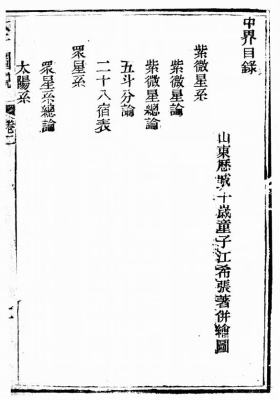 中界目錄
山東歷城十歲童子江希張著併繪圖
紫微星系
紫微星論
紫微星總論
五斗分論
二十八宿表
眾星系
眾星系總論
太陽系